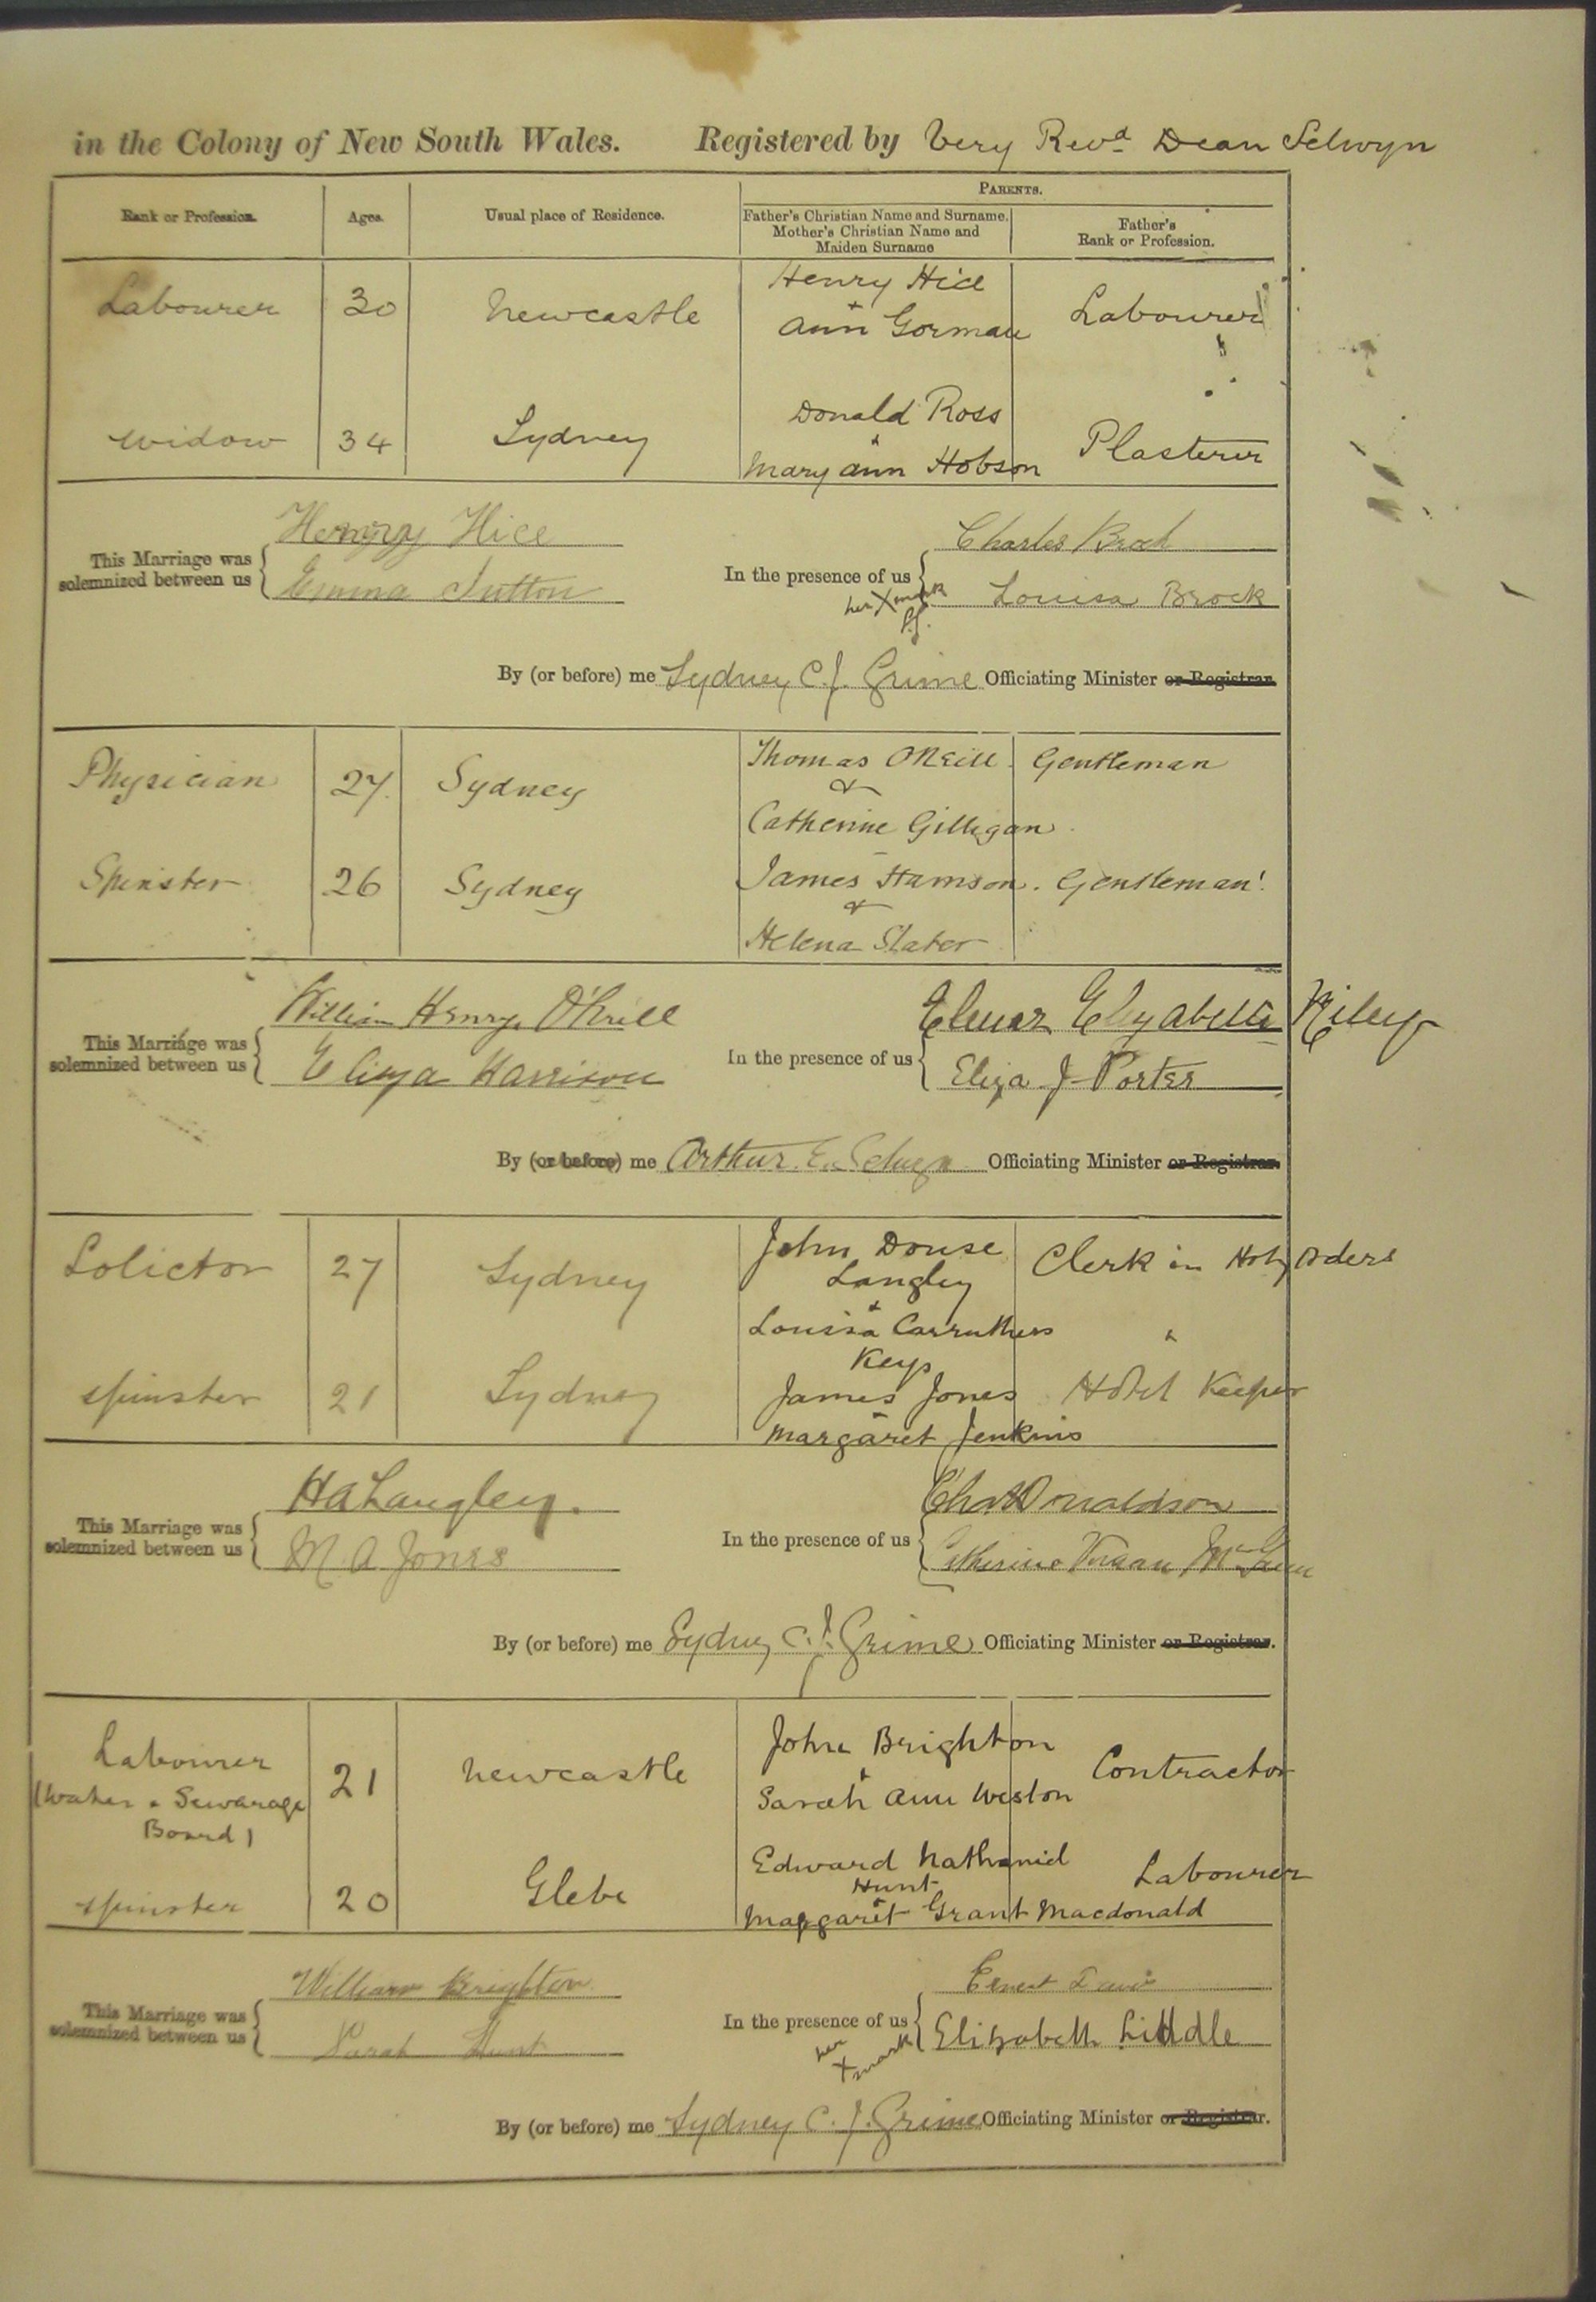 in the Colony of New South Wales. Registered by Very Revd Dean Selwyn
PARENTS.
Rank or Profession. Ages. Usual place of Residence. Father's Christian Name and Surname. Father's
Mother's Christian Name and Rank or Profession.
Maiden Surname
Henry Hice
Labourer 30 Newcastle + Labourer
Ann Gorman
Donald Ross
widow 34 Sydney & Plasterer
Mary Ann Hobson
Henry Hice Charles Brock
This Marriage was In the presence of us
solemnized between us Emma Sutton her X mark Louisa Brock
By (or before) me Sydney C. J. Grime Officiating Minister or Registrar.
Thomas ONeill Gentleman
Physician 27 Sydney &
Catherine Gilligan
Spinster 26 Sydney James Hamson. Gentleman
&
Helena Slater
William Henry O'Neill Elenor Elizabeth Riley
This Marriage was In the presence of us
solemnized between us Eliza Harrison Eliza J Porter
By (or before) me Arthur E. Selwyn Officiating Minister or Registrar.
John Douse
Solictor 27 Sydney Langley Clerk in Holy Oders
&
Louisa Carruthers "
Keys
spinster 21 Sydney James Jones Hotel Keeper
Margaret Jenkins
H A Langley. Chas Donaldson
This Marriage was In the presence of us
solemnized between us M. A Jones Catherine
By (or before) me Sydney C. J. Grime Officiating Minister or Registrar.
Labourer John Brighton
21 Newcastle & Contractor
(Water & Sewarage Sarah Ann Weston
Board)
Edward Nathaniel
Glebe Hunt Labourer
spinster 20 Margaret Grant Macdonald
William Brighton Ernest
This Marriage was In the presence of us
solemnized between us Sarah Hunt her X mark Elizabeth Liddle
By (or before) me Sydney C. J. Grime Officiating Minister or Registrar.